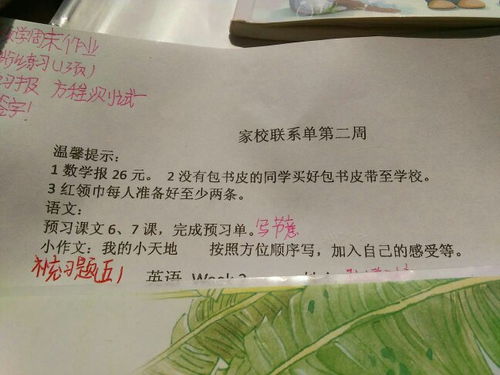 数学周末作业
练习(13页)
习报 方程测试一
签字!
家校联系单第二周
温馨提示：
1 数学报 26 元。 2 没有包书皮的同学买好包书皮带至学校。
3 红领巾每人准备好至少两条。
语文：
预习课文 6、7 课，完成预习单。
小作文：我的小天地 按照方位顺序写，加入自己的感受等。
补充习题五1
英语 Week